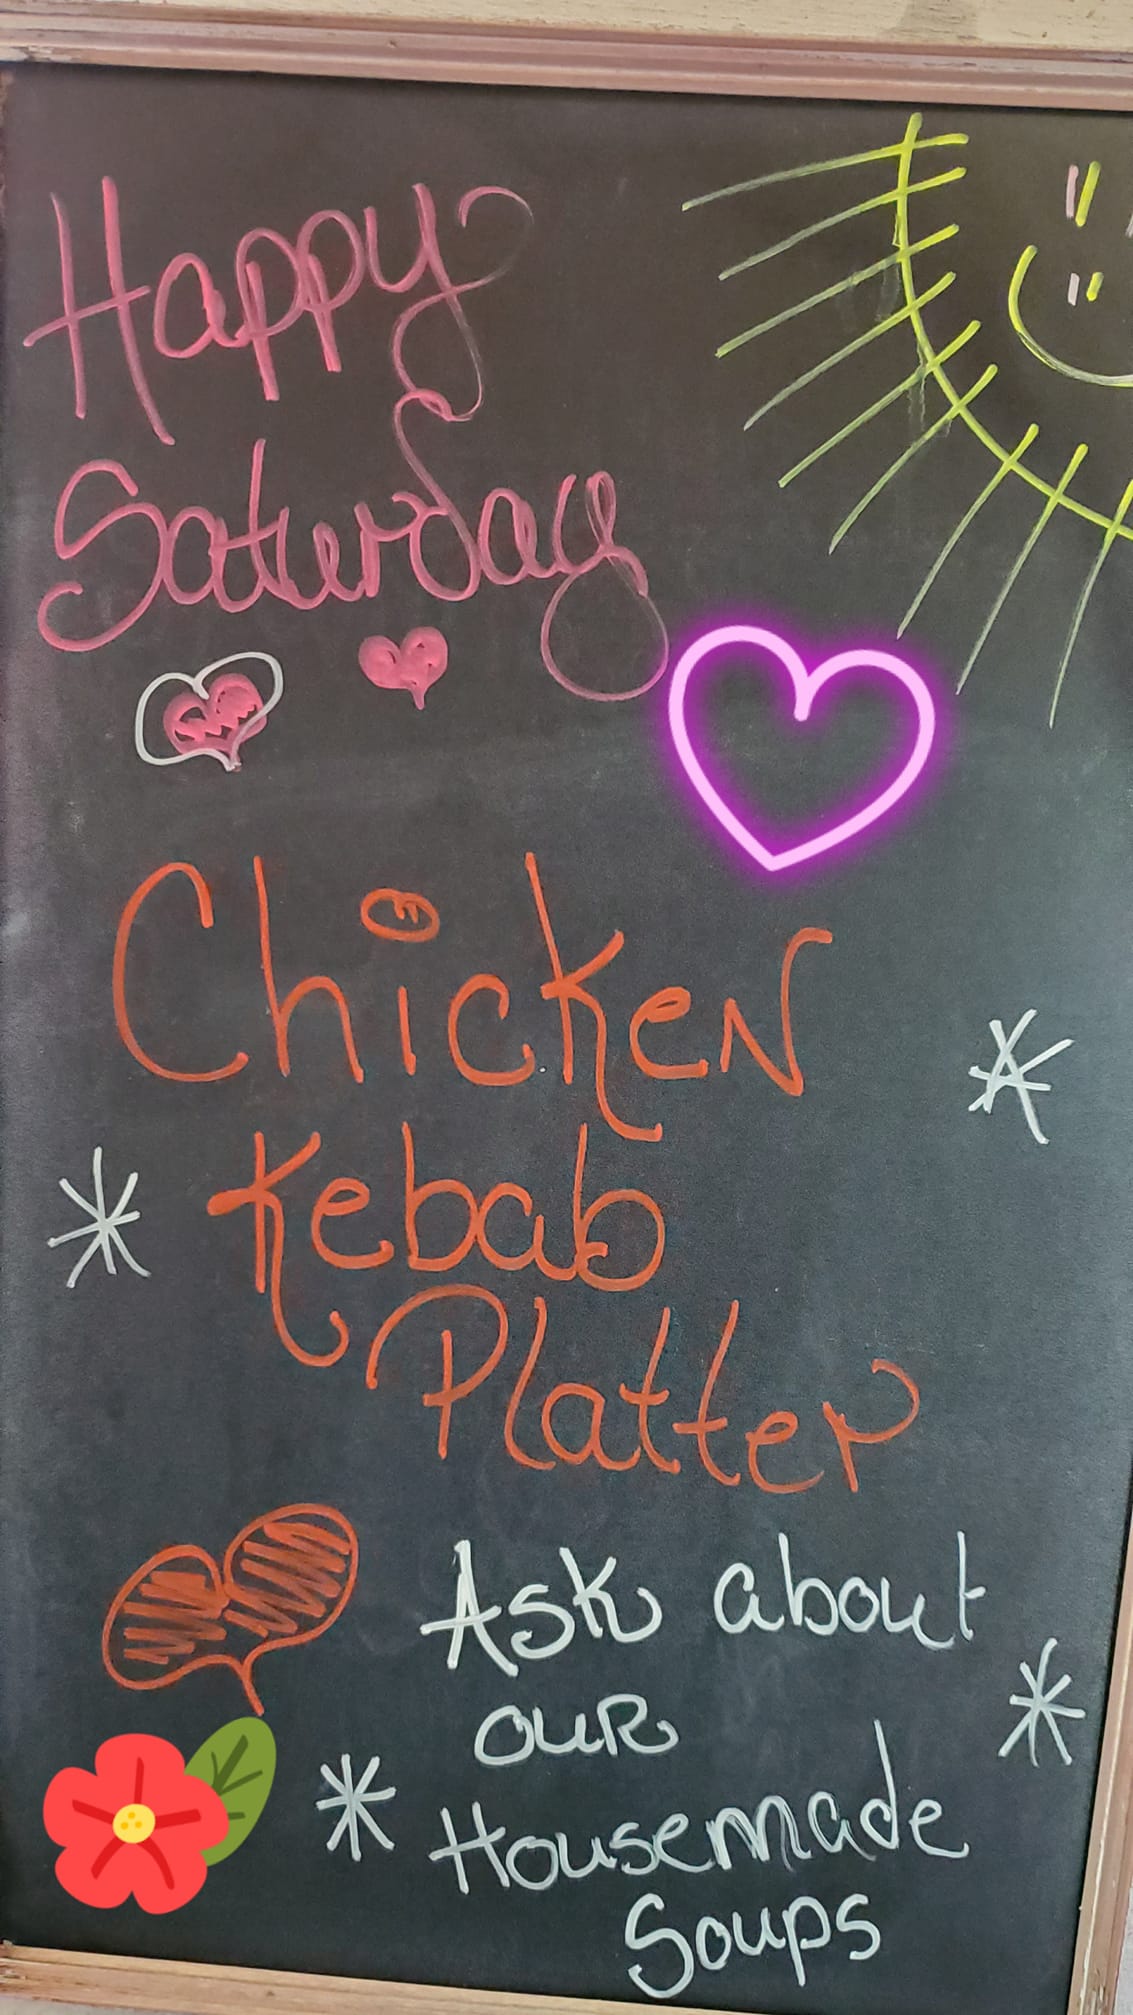 Happy
Saturday
Chicken
Kebab
Platter
Ask about
our
Housemade
Soups